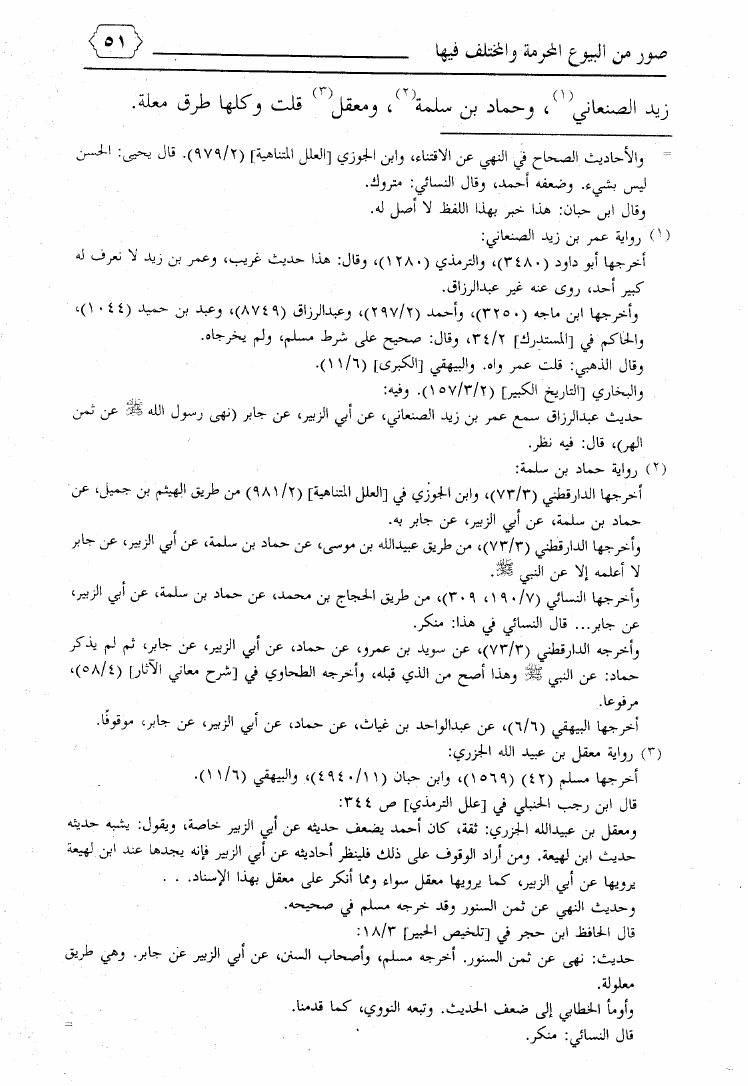 صور من البيوع المحرمة والمختلف فيها ٥١
زيد الصنعاني(١)، وحماد بن سلمة(٢)، ومعقل(٣) قلت وكلها طرق معلة.
= والأحاديث الصحاح في النهي عن الاقتناء، وابن الجوزي [العلل المتناهية] (٩٧٩/٢). قال يحيى: الحسن
ليس بشيء. وضعفه أحمد، وقال النسائي: متروك.
وقال ابن حبان: هذا خبر بهذا اللفظ لا أصل له.
(١) رواية عمر بن زيد الصنعاني:
أخرجها أبو داود (٣٤٨٠)، والترمذي (١٢٨٠)، وقال: هذا حديث غريب، وعمر بن زيد لا نعرف له
كبير أحد، روى عنه غير عبدالرزاق.
وأخرجها ابن ماجه (٣٢٥٠)، وأحمد (٢٩٧/٢)، وعبدالرزاق (٨٧٤٩)، وعبد بن حميد (١٠٤٤)،
والحاكم في [المستدرك] ٣٤/٢، وقال: صحيح على شرط مسلم، ولم يخرجاه.
وقال الذهبي: قلت عمر واه. والبيهقي [الكبرى] (١١/٦).
والبخاري [التاريخ الكبير] (١٥٧/٣/٢). وفيه:
حديث عبدالرزاق سمع عمر بن زيد الصنعاني، عن أبي الزبير، عن جابر (نهى رسول الله ﷺ عن ثمن
الهر)، قال: فيه نظر.
(٢) رواية حماد بن سلمة:
أخرجها الدارقطني (٧٣/٣)، وابن الجوزي في [العلل المتناهية] (٩٨١/٢) من طريق الهيثم بن جميل، عن
حماد بن سلمة، عن أبي الزبير، عن جابر به.
وأخرجها الدارقطني (٧٣/٣)، من طريق عبيدالله بن موسى، عن حماد بن سلمة، عن أبي الزبير، عن جابر
لا أعلمه إلا عن النبي ﷺ.
وأخرجها النسائي (١٩٠/٧، ٣٠٩)، من طريق الحجاج بن محمد، عن حماد بن سلمة، عن أبي الزبير،
عن جابر... قال النسائي في هذا: منكر.
وأخرجه الدارقطني (٧٣/٣)، عن سويد بن عمرو، عن حماد، عن أبي الزبير، عن جابر، ثم لم يذكر
حماد: عن النبي ﷺ وهذا أصح من الذي قبله، وأخرجه الطحاوي في [شرح معاني الآثار] (٥٨/٤)،
مرفوعا.
أخرجها البيهقي (٦/٦)، عن عبدالواحد بن غياث، عن حماد، عن أبي الزبير، عن جابر، موقوفًا.
(٣) رواية معقل بن عبيد الله الجزري:
أخرجها مسلم (٤٢) (١٥٦٩)، وابن حبان (٤٩٤٠/١١)، والبيهقي (١١/٦).
قال ابن رجب الحنبلي في [علل الترمذي] ص ٣٤٤:
ومعقل بن عبيدالله الجزري: ثقة، كان أحمد يضعف حديثه عن أبي الزبير خاصة، ويقول: يشبه حديثه
حديث ابن لهيعة. ومن أراد الوقوف على ذلك فلينظر أحاديثه عن أبي الزبير فإنه يجدها عند ابن لهيعة
يرويها عن أبي الزبير، كما يرويها معقل سواء ومما أنكر على معقل بهذا الإسناد. . .
وحديث النهي عن ثمن السنور وقد خرجه مسلم في صحيحه.
قال الحافظ ابن حجر في [تلخيص الحبير] ١٨/٣:
حديث: نهى عن ثمن السنور. أخرجه مسلم، وأصحاب السنن، عن أبي الزبير عن جابر. وهي طريق
معلولة.
وأومأ الخطابي إلى ضعف الحديث. وتبعه النووي، كما قدمنا.
قال النسائي: منكر. =